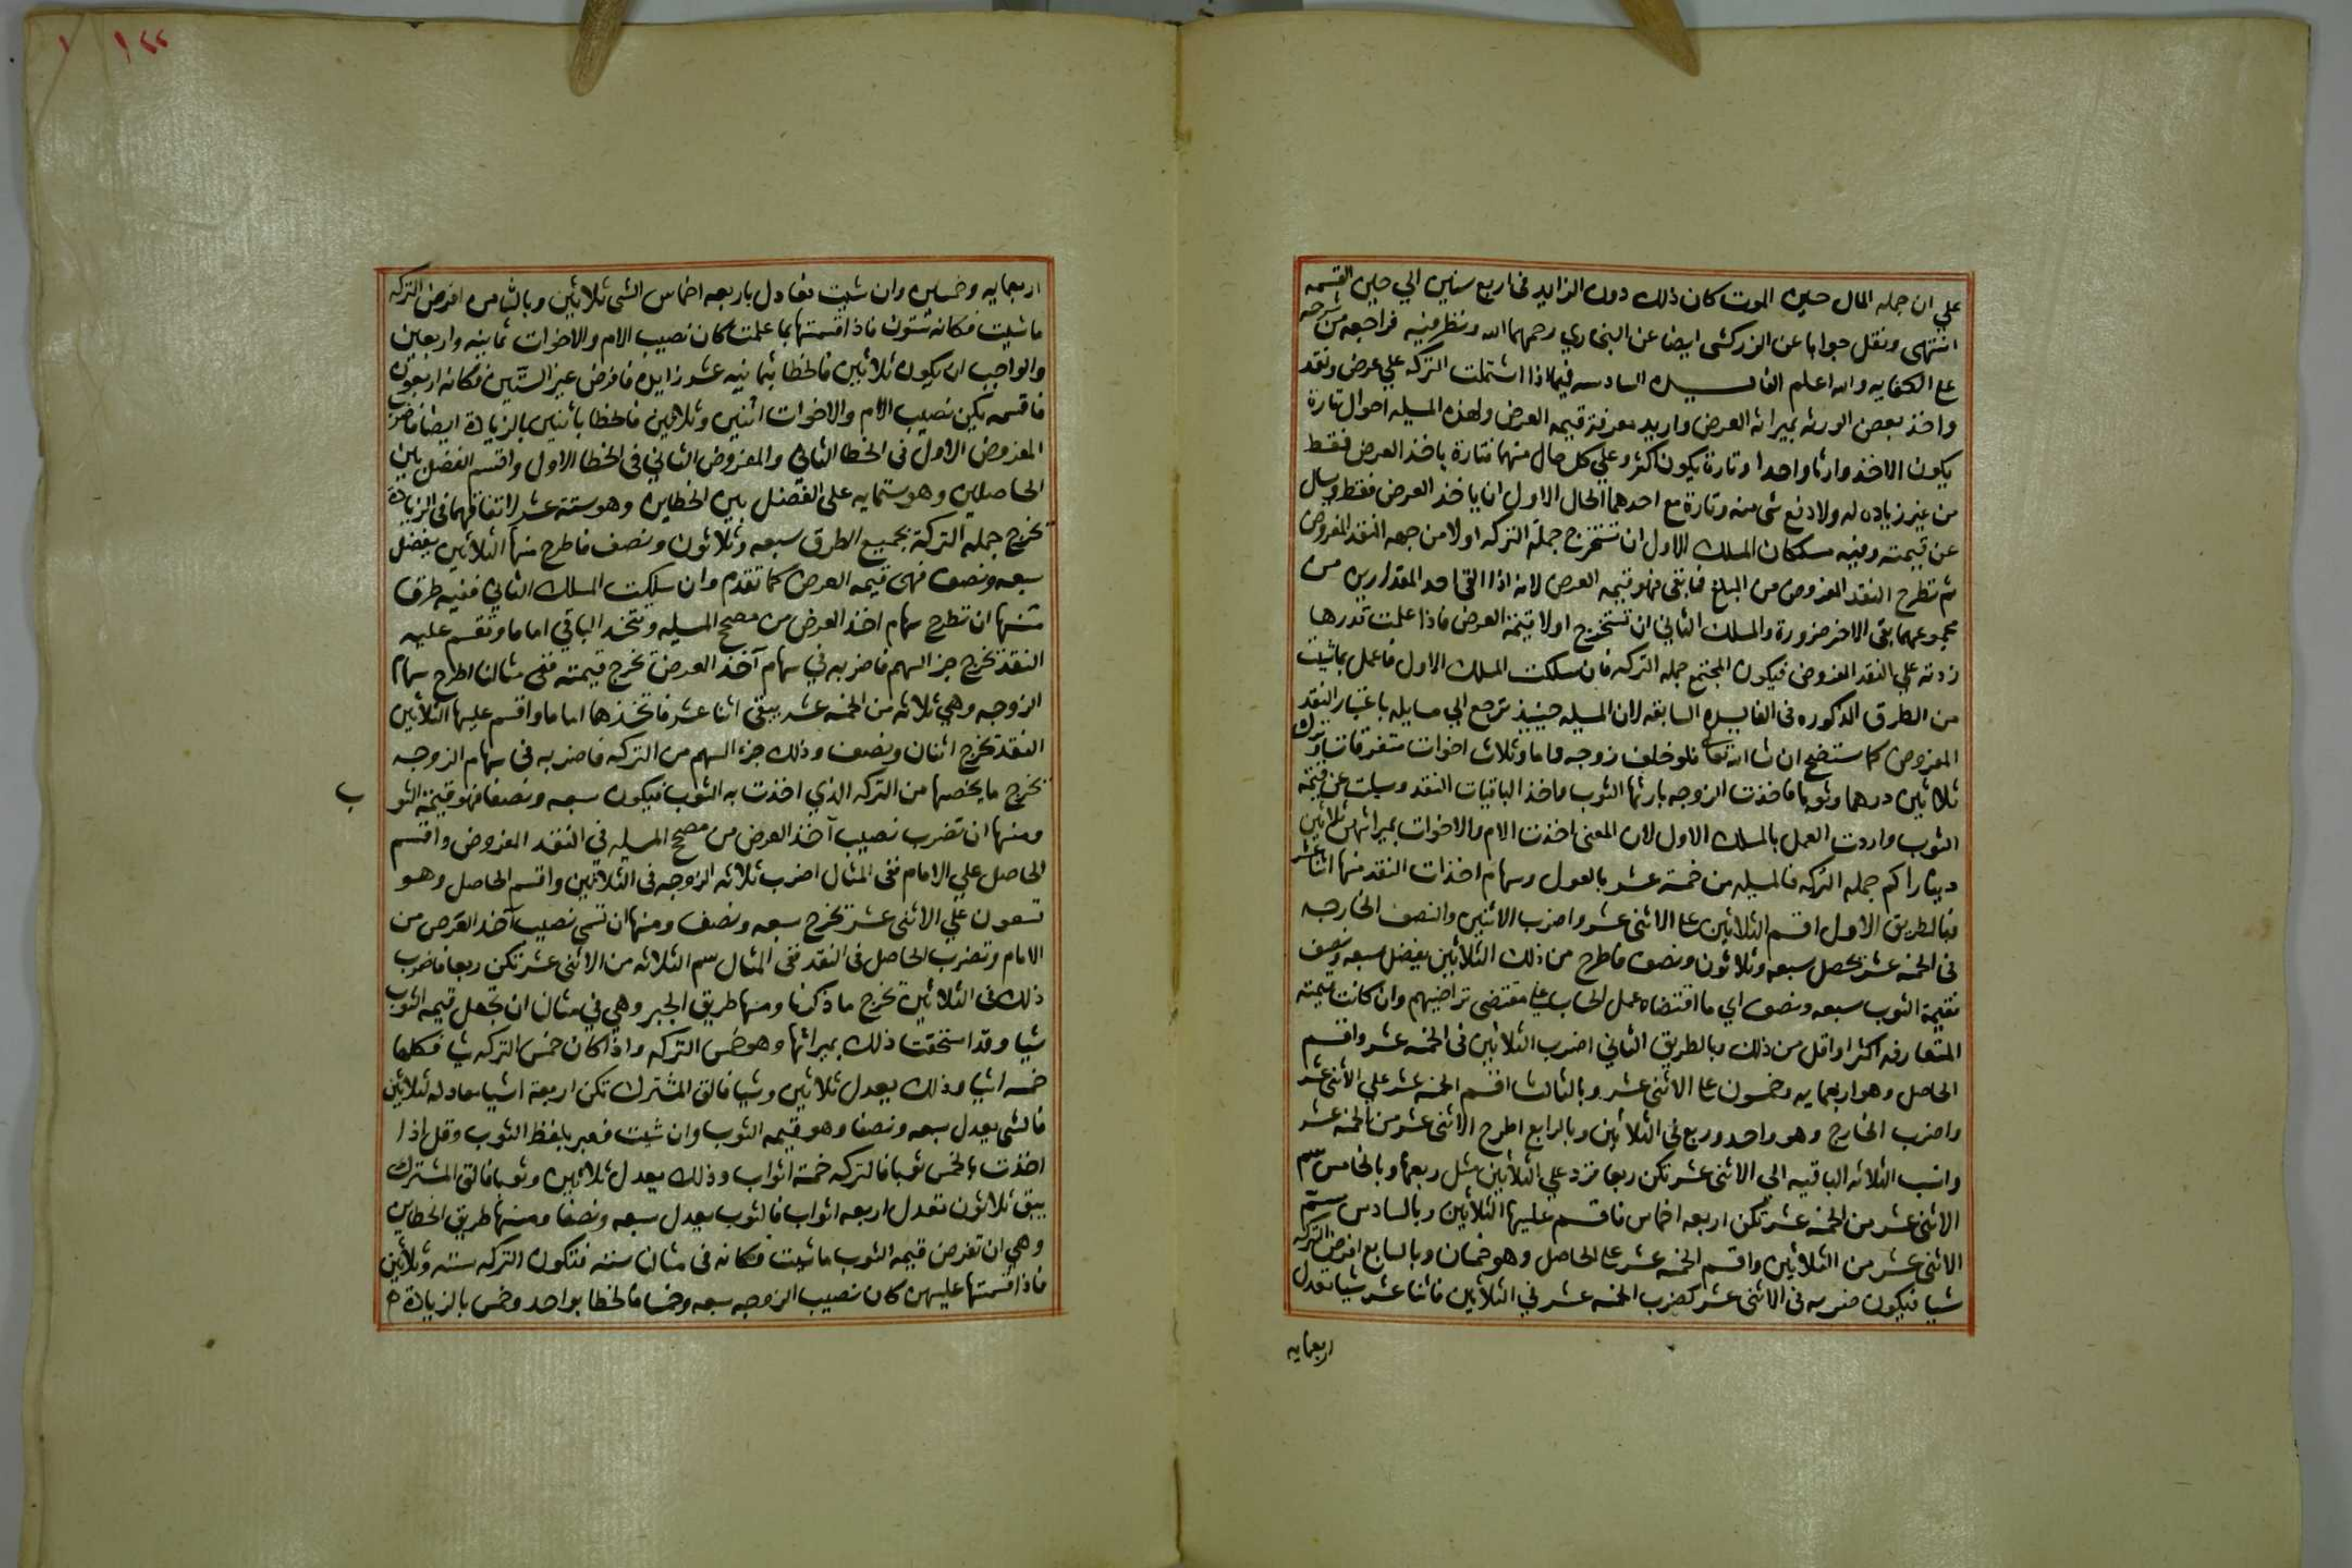 علي ان جمله المال حين الموت كان ذلك دون الزايد في اربع سنين الي حين القسمه
انتهى ونقل جوابا عن الزركشي ايضا عن البخاري رحمهما الله ونظر فيه فراجعه من شرحه
علي الكفايه والله اعلم الفايده السادسه فيما اذا اشتملت التركه علي عرض ونقد
واخذ بعض الورثه بميراثه العرض واريد معرفة قيمه العرض ولهذه المسيله احوال تارة
يكون الاخذ وارثا واحدا وتارة يكون اكثر وعلي كل حال منهما فتارة ياخذ العرض فقط
من غير زياده له ولا دفع شي منه وتارة مع احدهما الحال الاول ان ياخذ العرض فقط ويسال
عن قيمته وفيه مسلكان المسلك الاول ان تستخرج جملة التركه اولا من جهه النقد المفروض
ثم تطرح النقد المفروض من المبلغ فما بقي فهو قيمه العرض لانه اذا القي احد المقدارين من
مجموعهما بقي الاخر ضرورة والمسلك الثاني ان تستخرج اولا قيمة العرض فاذا علمت قدرها
زدته علي النقد المفروض فيكون المجتمع جمله التركه فان سلكت المسلك الاول فاعمل بما شيت
من الطرق المذكوره في الفايده السابقه لان المسيله حينيذ ترجع الي مسايله باعتبار النقد
المفروض كما ستضح ان شا الله تعا فلو خلف زوجه واما وثلاث اخوات متفرقات وترك
ثلاثين درهما وثوبا فاخذت الزوجه بارثها الثوب واخذ الباقيات النقد وسيلت عن قيمة
الثوب واردت العمل بالمسلك الاول لان المعنى اخذت الام والاخوات بميراثهن ثلاثين
دينارا كم جمله التركه فالمسيله من خمسة عشر بالعول وسهام اخذات النقد منها اثنا عشر
فبالطريق الاول اقسم الثلاثين علي الاثني عشر واضرب الاثنين والنصف الخارجه
في الخمسه عشر يحصل سبعه وثلاثون ونصف فاطرح من ذلك الثلاثين يفضل سبعه ونصف
فقيمة الثوب سبعه ونصف اي ما اقتضاه عمل الحساب علي مقتضى تراضيهم وان كانت قيمته
المتعارفه اكثر او اقل من ذلك وبالطريق الثاني اضرب الثلاثين في الخمسه عشر واقسم
الحاصل وهو اربعمايه وخمسون علي الاثني عشر وبالثالث اقسم الخمسه عشر علي الاثني عشر
واضرب الخارج وهو واحد وربع في الثلاثين وبالرابع اطرح الاثني عشر من الخمسه عشر
وانسب الثلاثه الباقيه الي الاثني عشر تكن ربعا فزد علي الثلاثين مثل ربعها وبالخامس سم
الاثني عشر من الخمسه عشر تكن اربعه اخماس فاقسم عليها الثلاثين وبالسادس سم
الاثني عشر من الثلاثين واقسم الخمسه عشر علي الحاصل وهو خمسان وبالسابع افرض التركه
شيا فيكون ضربه في الاثني عشر كضرب الخمسه عشر في الثلاثين فاثنا عشر شيا تعدل
اربعمايه
١٢٢
اربعمايه وخمسين وان شيت تعادل باربعه اخماس الشي ثلاثين وبالثامن افرض التركه
ما شيت فكانه ستون فاذا قسمتها بما علمت كان نصيب الام والاخوات ثمانيه واربعين
والواجب ان يكون ثلاثين فالخطا بثمانيه عشر زايده فافرض غير الستين فكانه اربعون
فاقسمه يكن نصيب الام والاخوات اثنين وثلاثين فالخطا باثنين بالزيادة ايضا فاضرب
المفروض الاول في الخطا الثاني والمفروض الثاني في الخطا الاول واقسم الفضل بين
الحاصلين وهو ستمايه على الفضل بين الخطاين وهو ستة عشر لاتفاقهما في الزيادة
تخرج جمله التركة بجميع الطرق سبعه وثلاثون ونصف فاطرح منها الثلاثين يفضل
سبعه ونصف فهي قيمه العرض كما تقدم وان سلكت المسلك الثاني ففيه طرق
منها ان تطرح سهام اخذ العرض من مصحح المسيله وتتخذ الباقي اماما وتقسم عليه
النقد تخرج جز السهم فاضربه في سهام آخذ العرض تخرج قيمته ففي مثالنا اطرح سهام
الزوجه وهي ثلاثه من الخمسه عشر يبقى اثنا عشر فاتخذها اماما واقسم عليها الثلاثين
النقد تخرج اثنان ونصف وذلك جزء السهم من التركه فاضربه في سهام الزوجه
تخرج ما يخصها من التركه الذي اخذت به الثوب فيكون سبعه ونصفا فهو قيمة الثو ب
ومنها ان تضرب نصيب آخذ العرض من مصحح المسيله في النقد المفروض واقسم
الحاصل علي الامام ففي المثال اضرب ثلاثه الزوجه في الثلاثين واقسم الحاصل وهو
تسعون علي الاثني عشر تخرج سبعه ونصف ومنها ان تسمي نصيب آخذ العرض من
الامام وتضرب الحاصل في النقد ففي المثال سم الثلاثه من الاثني عشر تكن ربعا فاضرب
ذلك في الثلاثين تخرج ما ذكرنا ومنها طريق الجبر وهي في مثالنا ان تجعل قيمه الثوب
شيا وقد استحقت ذلك بميراثها وهو خمس التركه واذا كان خمس التركه شيا فكلها
خمسه اشيا وذلك يعدل ثلاثين وشيا فالق المشترك تكن اربعة اشيا معادله لثلاثين
فالشي يعدل سبعه ونصفا وهو قيمه الثوب وان شيت فعبر بلفظ الثوب وقل اذا
اخذت بالخمس ثوبا فالتركه خمسة اثواب وذلك يعدل ثلاثين وثوبا فالق المشترك
يبق ثلاثون تعدل اربعه اثواب فالثوب يعدل سبعه ونصفا ومنها طريق الخطاين
وهي ان تفرض قيمه الثوب ما شيت فكانه في مثالنا ستة فتكون التركه سته وثلاثين
فاذا قسمتها عليهن كان نصيب الزوجه سبعه وخمسا فالخطا بواحد وخمس بالزيادة